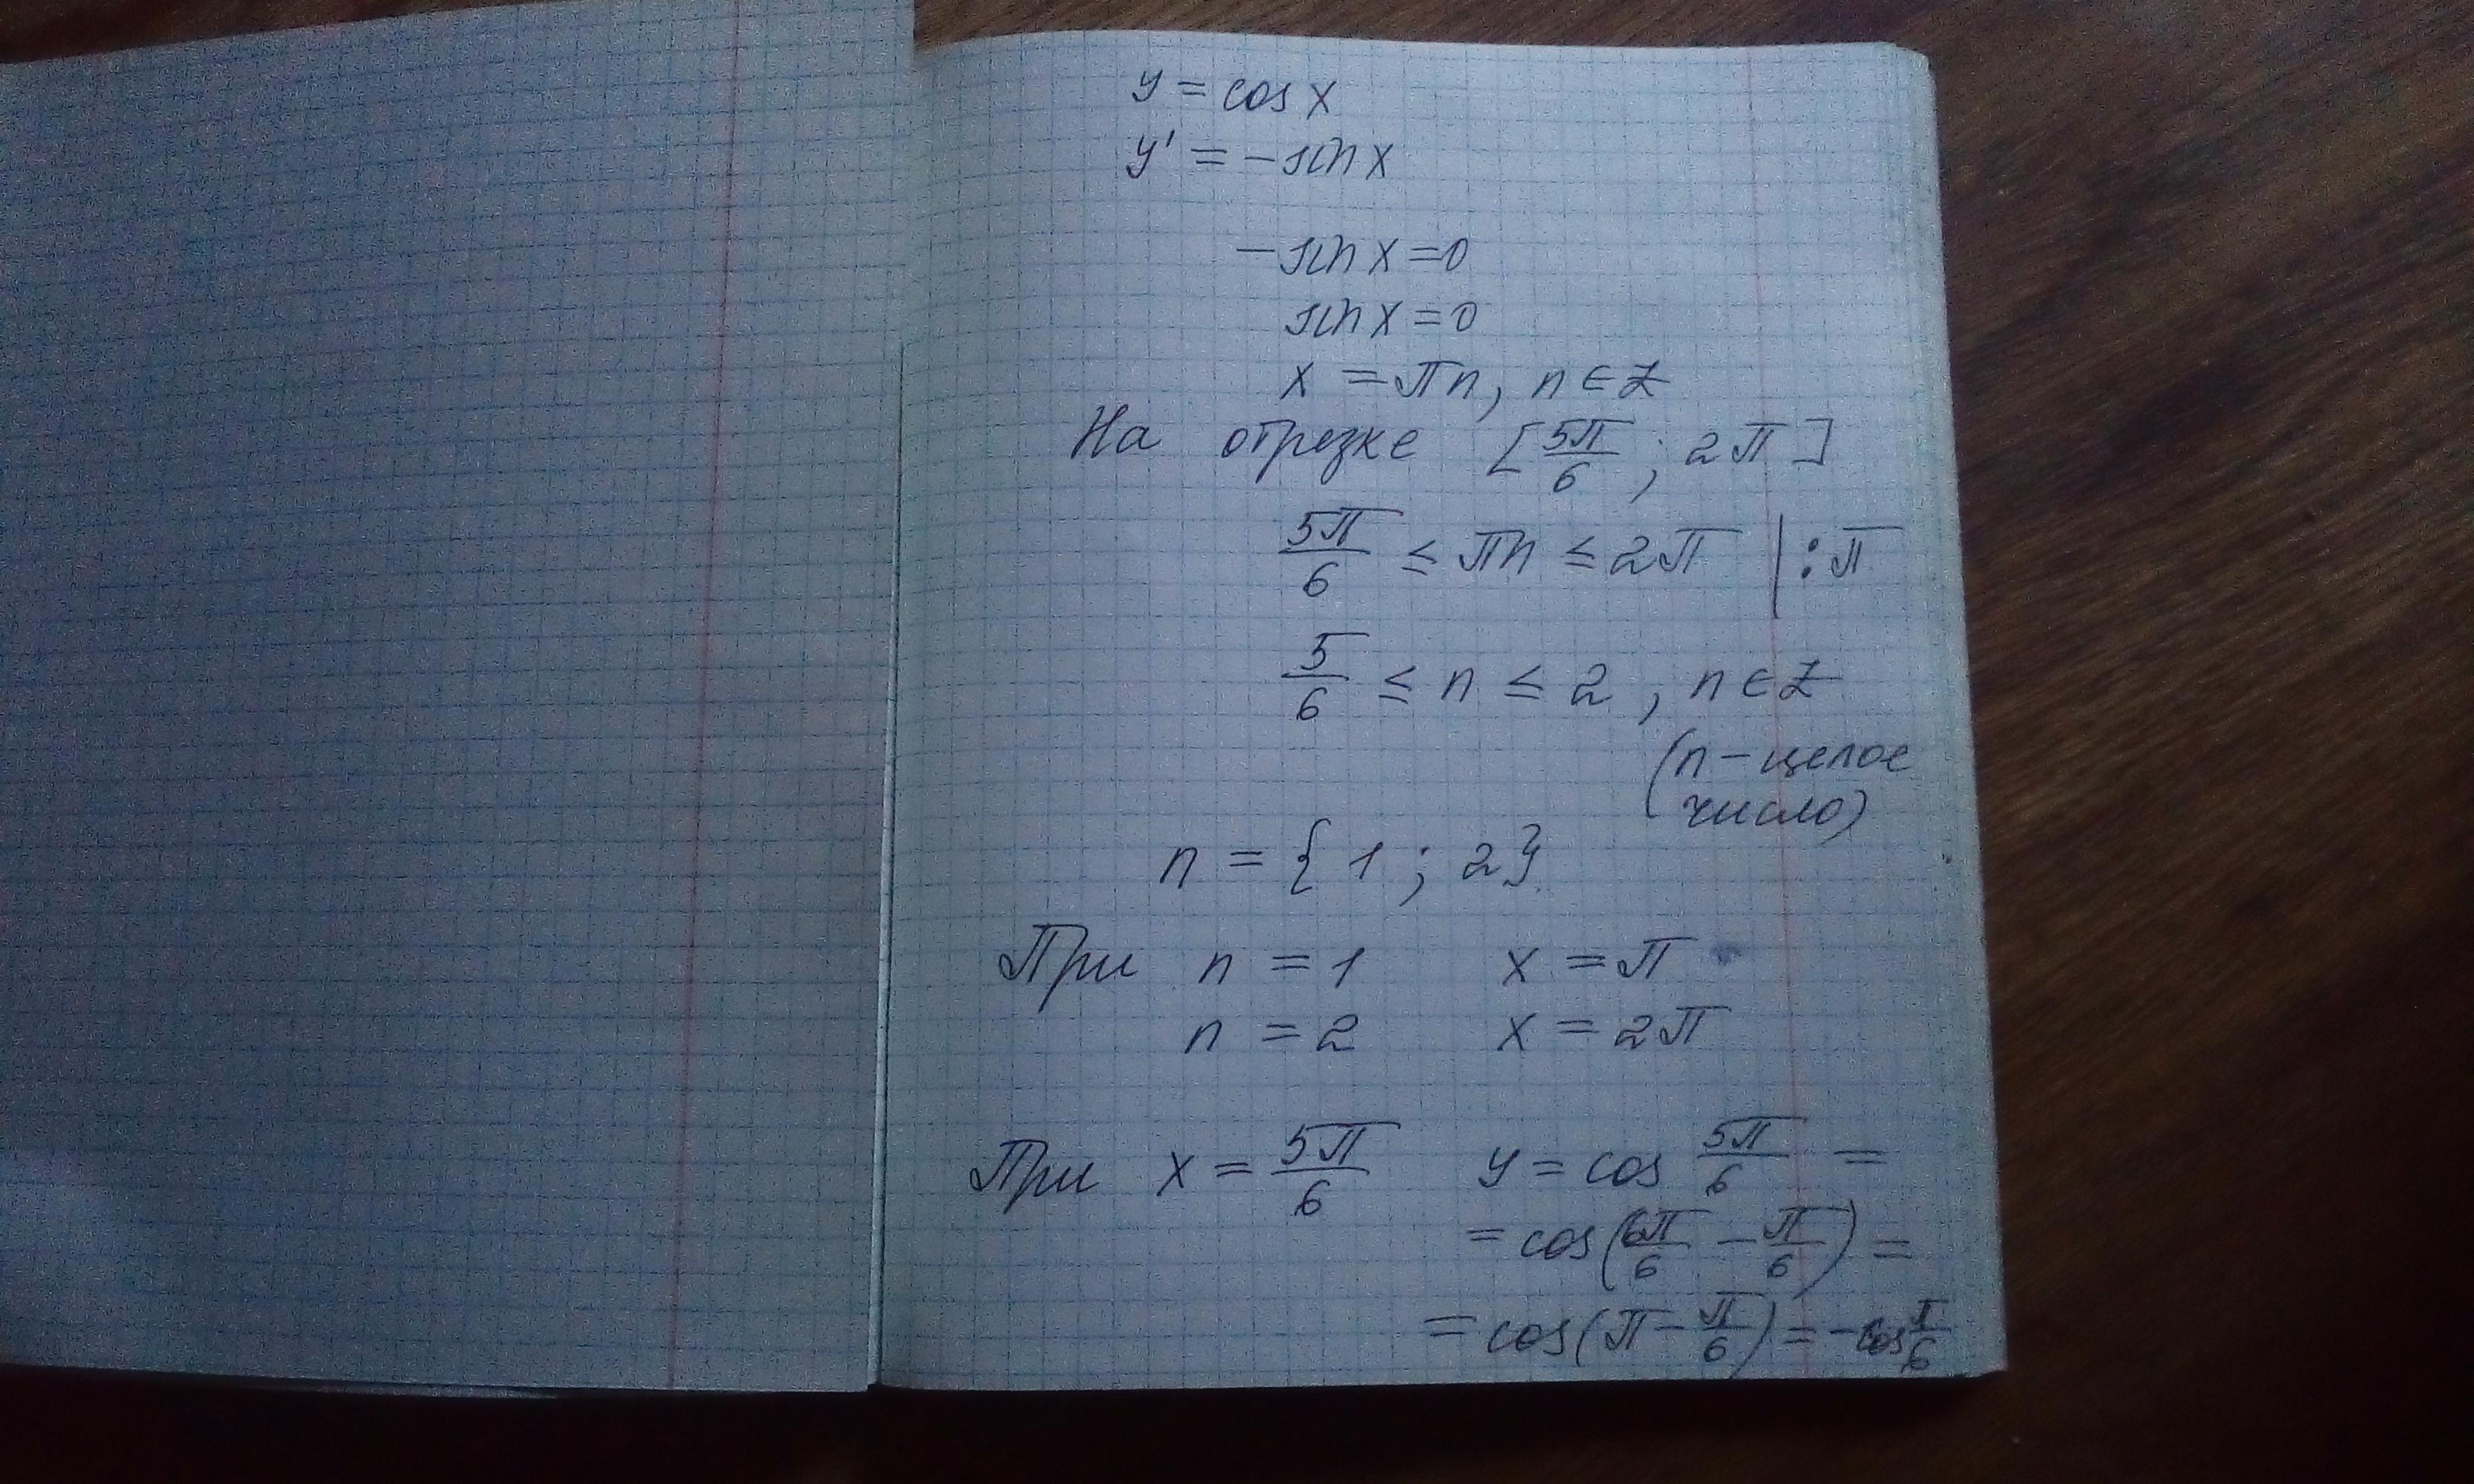 y = cos x
y' = -sin x
-sin x = 0
sin x = 0
x = πn, n ∈ Z
На отрезке [5π/6; 2π]
5π/6 ≤ πn ≤ 2π | :π
5/6 ≤ n ≤ 2, n ∈ Z
(n - целое
число)
n = {1; 2}
При n = 1 x = π
n = 2 x = 2π
При x = 5π/6 y = cos 5π/6 =
= cos(6π/6 - π/6) =
= cos(π - π/6) = -cos π/6